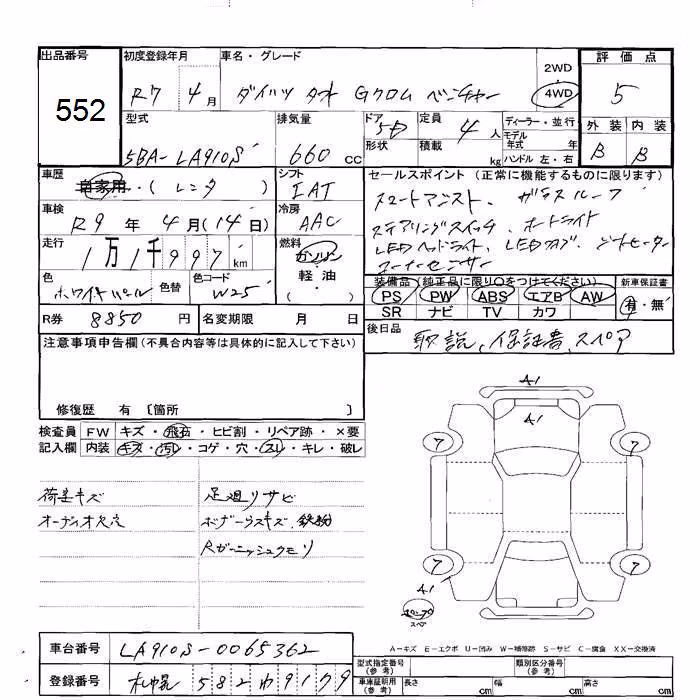 出品番号
552
初度登録年月
R7 4月
車名・グレード
ダイハツ タフト Gクロム ベンチャー
2WD
4WD
評価点
5
外装 内装
B B
型式
5BA-LA910S
排気量
660 cc
ドア
5D
形状
定員
4人
積載
kg
ディーラー・並行
モデル年式 年式
ハンドル 左・右
車歴
自家用・(レンタ)
シフト
IAT
車検
R9年4月(14日)
冷房
AAC
走行
1万1千997km
燃料
ガソリン
軽・油
( )
色
ホワイトパール
色替
色コード
W25
セールスポイント (正常に機能するものに限ります)
スマートアシスト、ガラスルーフ
ステアリングスイッチ、オートライト
LEDヘッドライト、LEDフォグ、シートヒーター
コーナーセンサー
装備品 (純正品に限り○をつけてください)
PS PW ABS エアB AW
SR ナビ TV カワ
新車保証書
有・無
R券 8850円
名変期限 月 日
後日品
取説、保証書、スペア
注意事項申告欄 (不具合内容等は具体的に記入して下さい)
修復歴 有 〔箇所 〕
検査員記入欄
FW キズ・飛石・ヒビ割・リペア跡・×要
内装 キズ・汚レ・コゲ・穴・スレ・キレ・破レ
荷室キズ
オーディオ欠穴
足廻リサビ
ボデーウスキズ、鉄粉
Rガーニッシュクモリ
A1
A1
7 7
7 7
A1
スペ
A=キズ E=エクボ U=凹み W=補修跡 S=サビ C=腐食 XX=交換済
車台番号
LA910S-0065362
登録番号
札幌 582 わ 9179
型式指定番号
(参考)
類別区分番号
(参考)
車庫証明用
(参考)
長さ cm 幅 cm 高さ cm